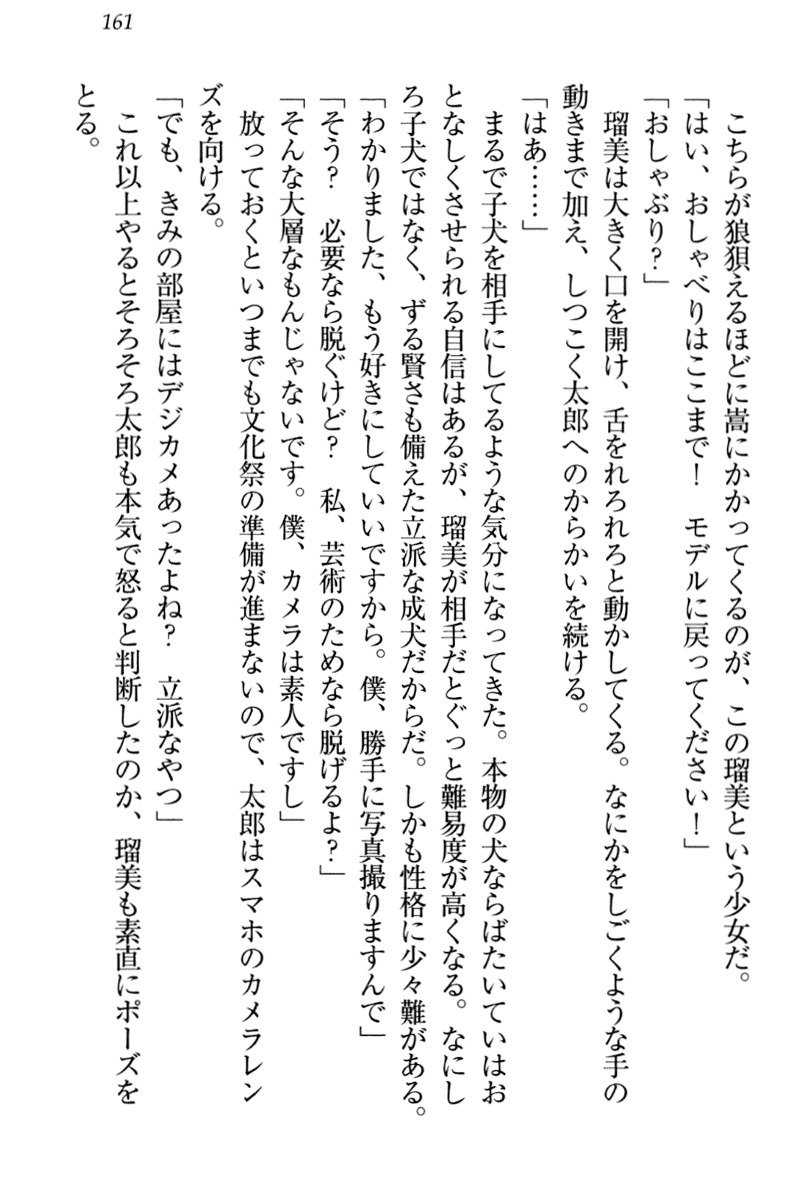 161
こちらが狼狽えるほどに嵩にかかってくるのが、この瑠美という少女だ。
「はい、おしゃべりはここまで！　モデルに戻ってください！」
「おしゃぶり？」
瑠美は大きく口を開け、舌をれろれろと動かしてくる。なにかをしごくような手の
動きまで加え、しつこく太郎へのからかいを続ける。
「はあ……」
まるで子犬を相手にしてるような気分になってきた。本物の犬ならばたいていはお
となしくさせられる自信はあるが、瑠美が相手だとぐっと難易度が高くなる。なにし
ろ子犬ではなく、ずる賢さも備えた立派な成犬だからだ。しかも性格に少々難がある。
「わかりました、もう好きにしていいですから。僕、勝手に写真撮りますんで」
「そう？　必要なら脱ぐけど？　私、芸術のためなら脱げるよ？」
「そんな大層なもんじゃないです。僕、カメラは素人ですし」
放っておくといつまでも文化祭の準備が進まないので、太郎はスマホのカメラレン
ズを向ける。
「でも、きみの部屋にはデジカメあったよね？　立派なやつ」
これ以上やるとそろそろ太郎も本気で怒ると判断したのか、瑠美も素直にポーズを
とる。